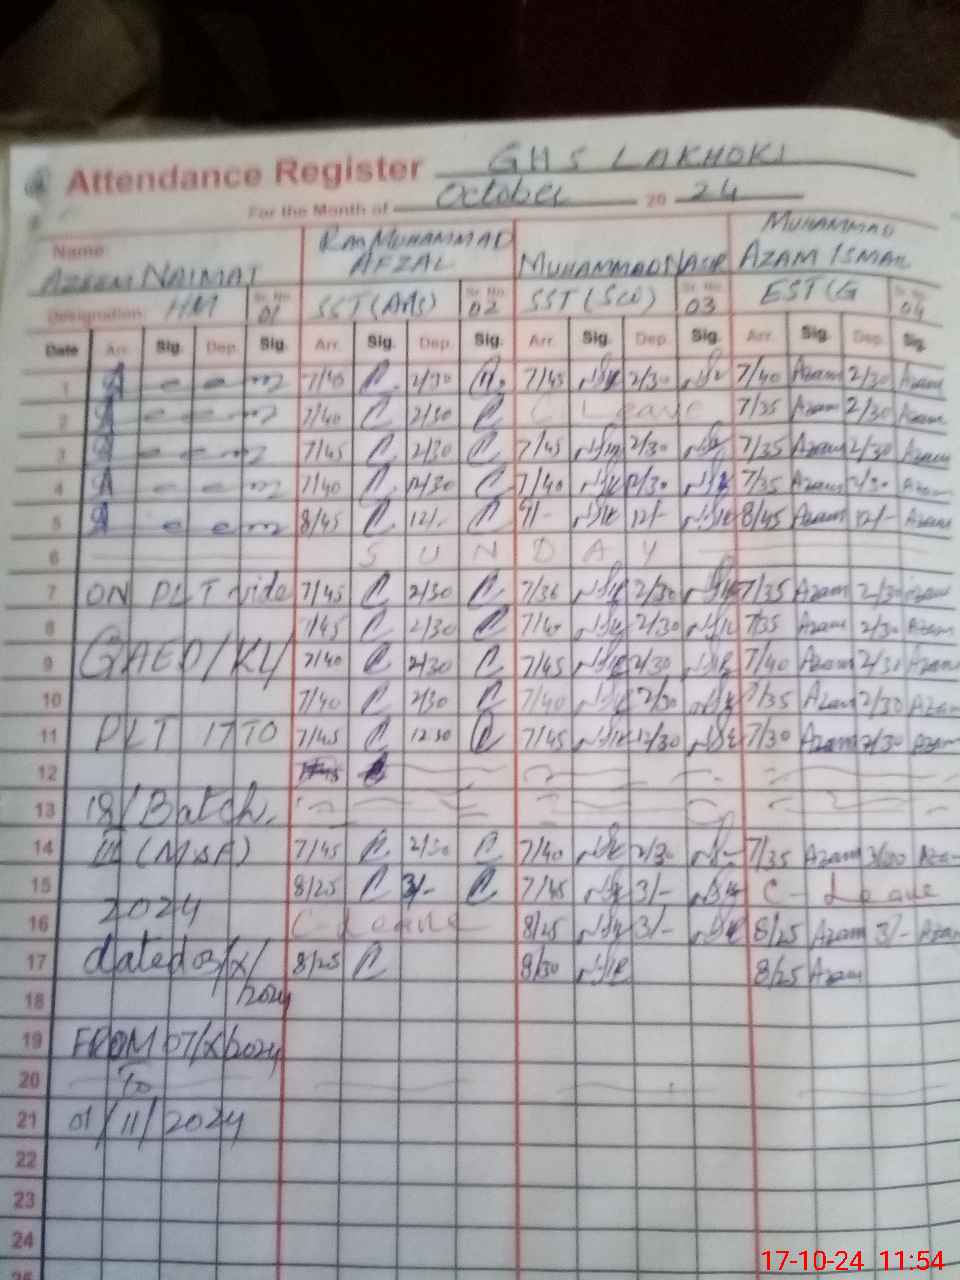 Attendance Register GHS LAKHOKI
For the Month of October 20 24
Name: AZEEM NAIMAT MUHAMMAD AFZAL MUHAMMAD NASIR MUHAMMAD AZAM ISMAIL
Designation: HM Sr. No. 01 SST (Arts) Sr. No. 02 SST (Sci) Sr. No. 03 EST (G Sr. No. 04
Date Arr. Sig. Dep. Sig. Arr. Sig. Dep. Sig. Arr. Sig. Dep. Sig. Arr. Sig. Dep. Sig.
1 7/40 2/30 7/45 2/30 7/40 Azam 2/30 Azam
2 7/40 2/30 C Leave 7/35 Azam 2/30 Azam
3 7/45 2/30 7/45 2/30 7/35 Azam 2/30 Azam
4 7/40 12/30 7/40 12/30 7/35 Azam Azam
5 8/45 12/- 9/- 12/- 8/45 Azam 12/- Azam
6 SUNDAY
7 ON PLT vide 7/45 2/30 7/36 2/30 7/35 Azam 2/30 Azam
8 7/45 2/30 2/30 7/35 Azam 2/30 Azam
9 GAED/KY 7/40 2/30 7/45 2/30 7/40 Azam 2/30 Azam
10 7/40 2/30 7/40 2/30 7/35 Azam 2/30 Azam
11 PLT 17TO 7/45 12 30 7/45 12/30 7/30 Azam 2/30 Azam
12
13 18/Batch.
14 III (M&F) 7/45 2/30 7/40 2/30 7/35 Azam 3/00 Azam
15 8/25 3/- 7/45 3/- C- Leave
16 2024 C-Leave 8/25 3/- 8/25 Azam 3/- Azam
17 dated 03/X/ 8/25 8/30 8/25 Azam
18 2024
19 FROM 07/X/2024
20 To
21 01/11/2024
22
23
24
25
17-10-24 11:54